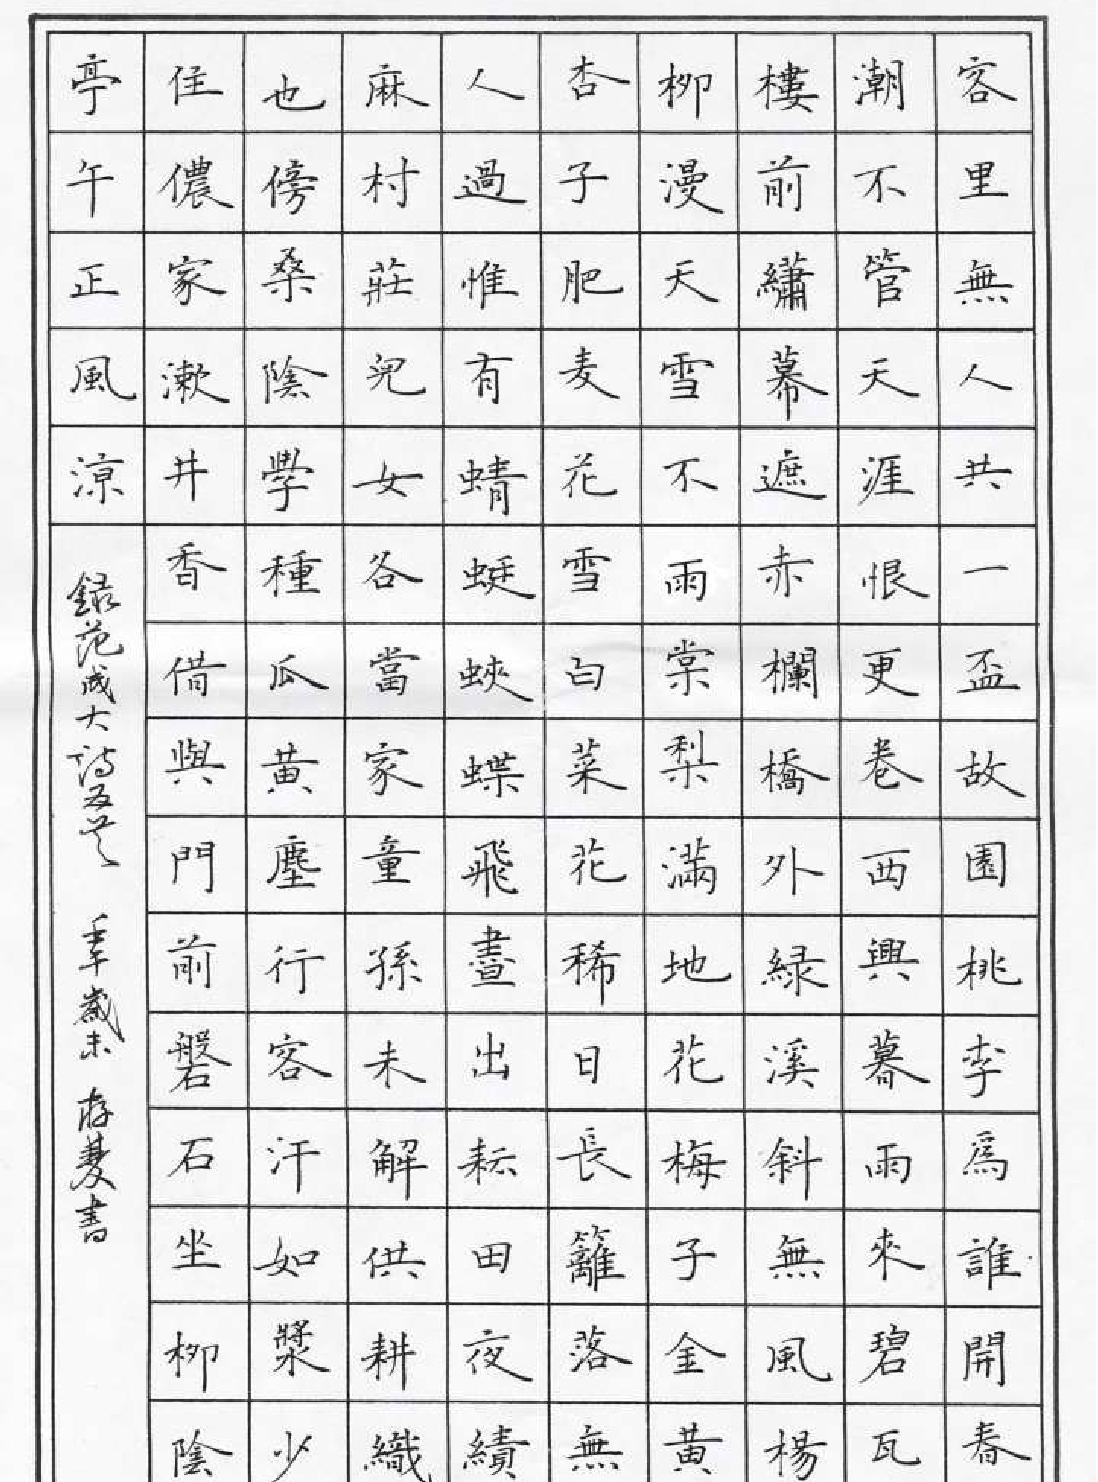 客里無人共一盃故園桃李爲誰開春
潮不管天涯恨更卷西興暮雨來碧瓦
樓前繡幕遮赤欄橋外綠溪斜無風楊
柳漫天雪不雨棠梨滿地花梅子金黃
杏子肥麦花雪白菜花稀日長籬落無
人過惟有蜻蜓蛺蝶飛晝出耘田夜績
麻村莊兒女各當家童孫未解供耕織
也傍桑陰學種瓜黃塵行客汗如漿少
住儂家漱井香借與門前磐石坐柳陰
亭午正風涼
錄范成大詩五首 歲末 書